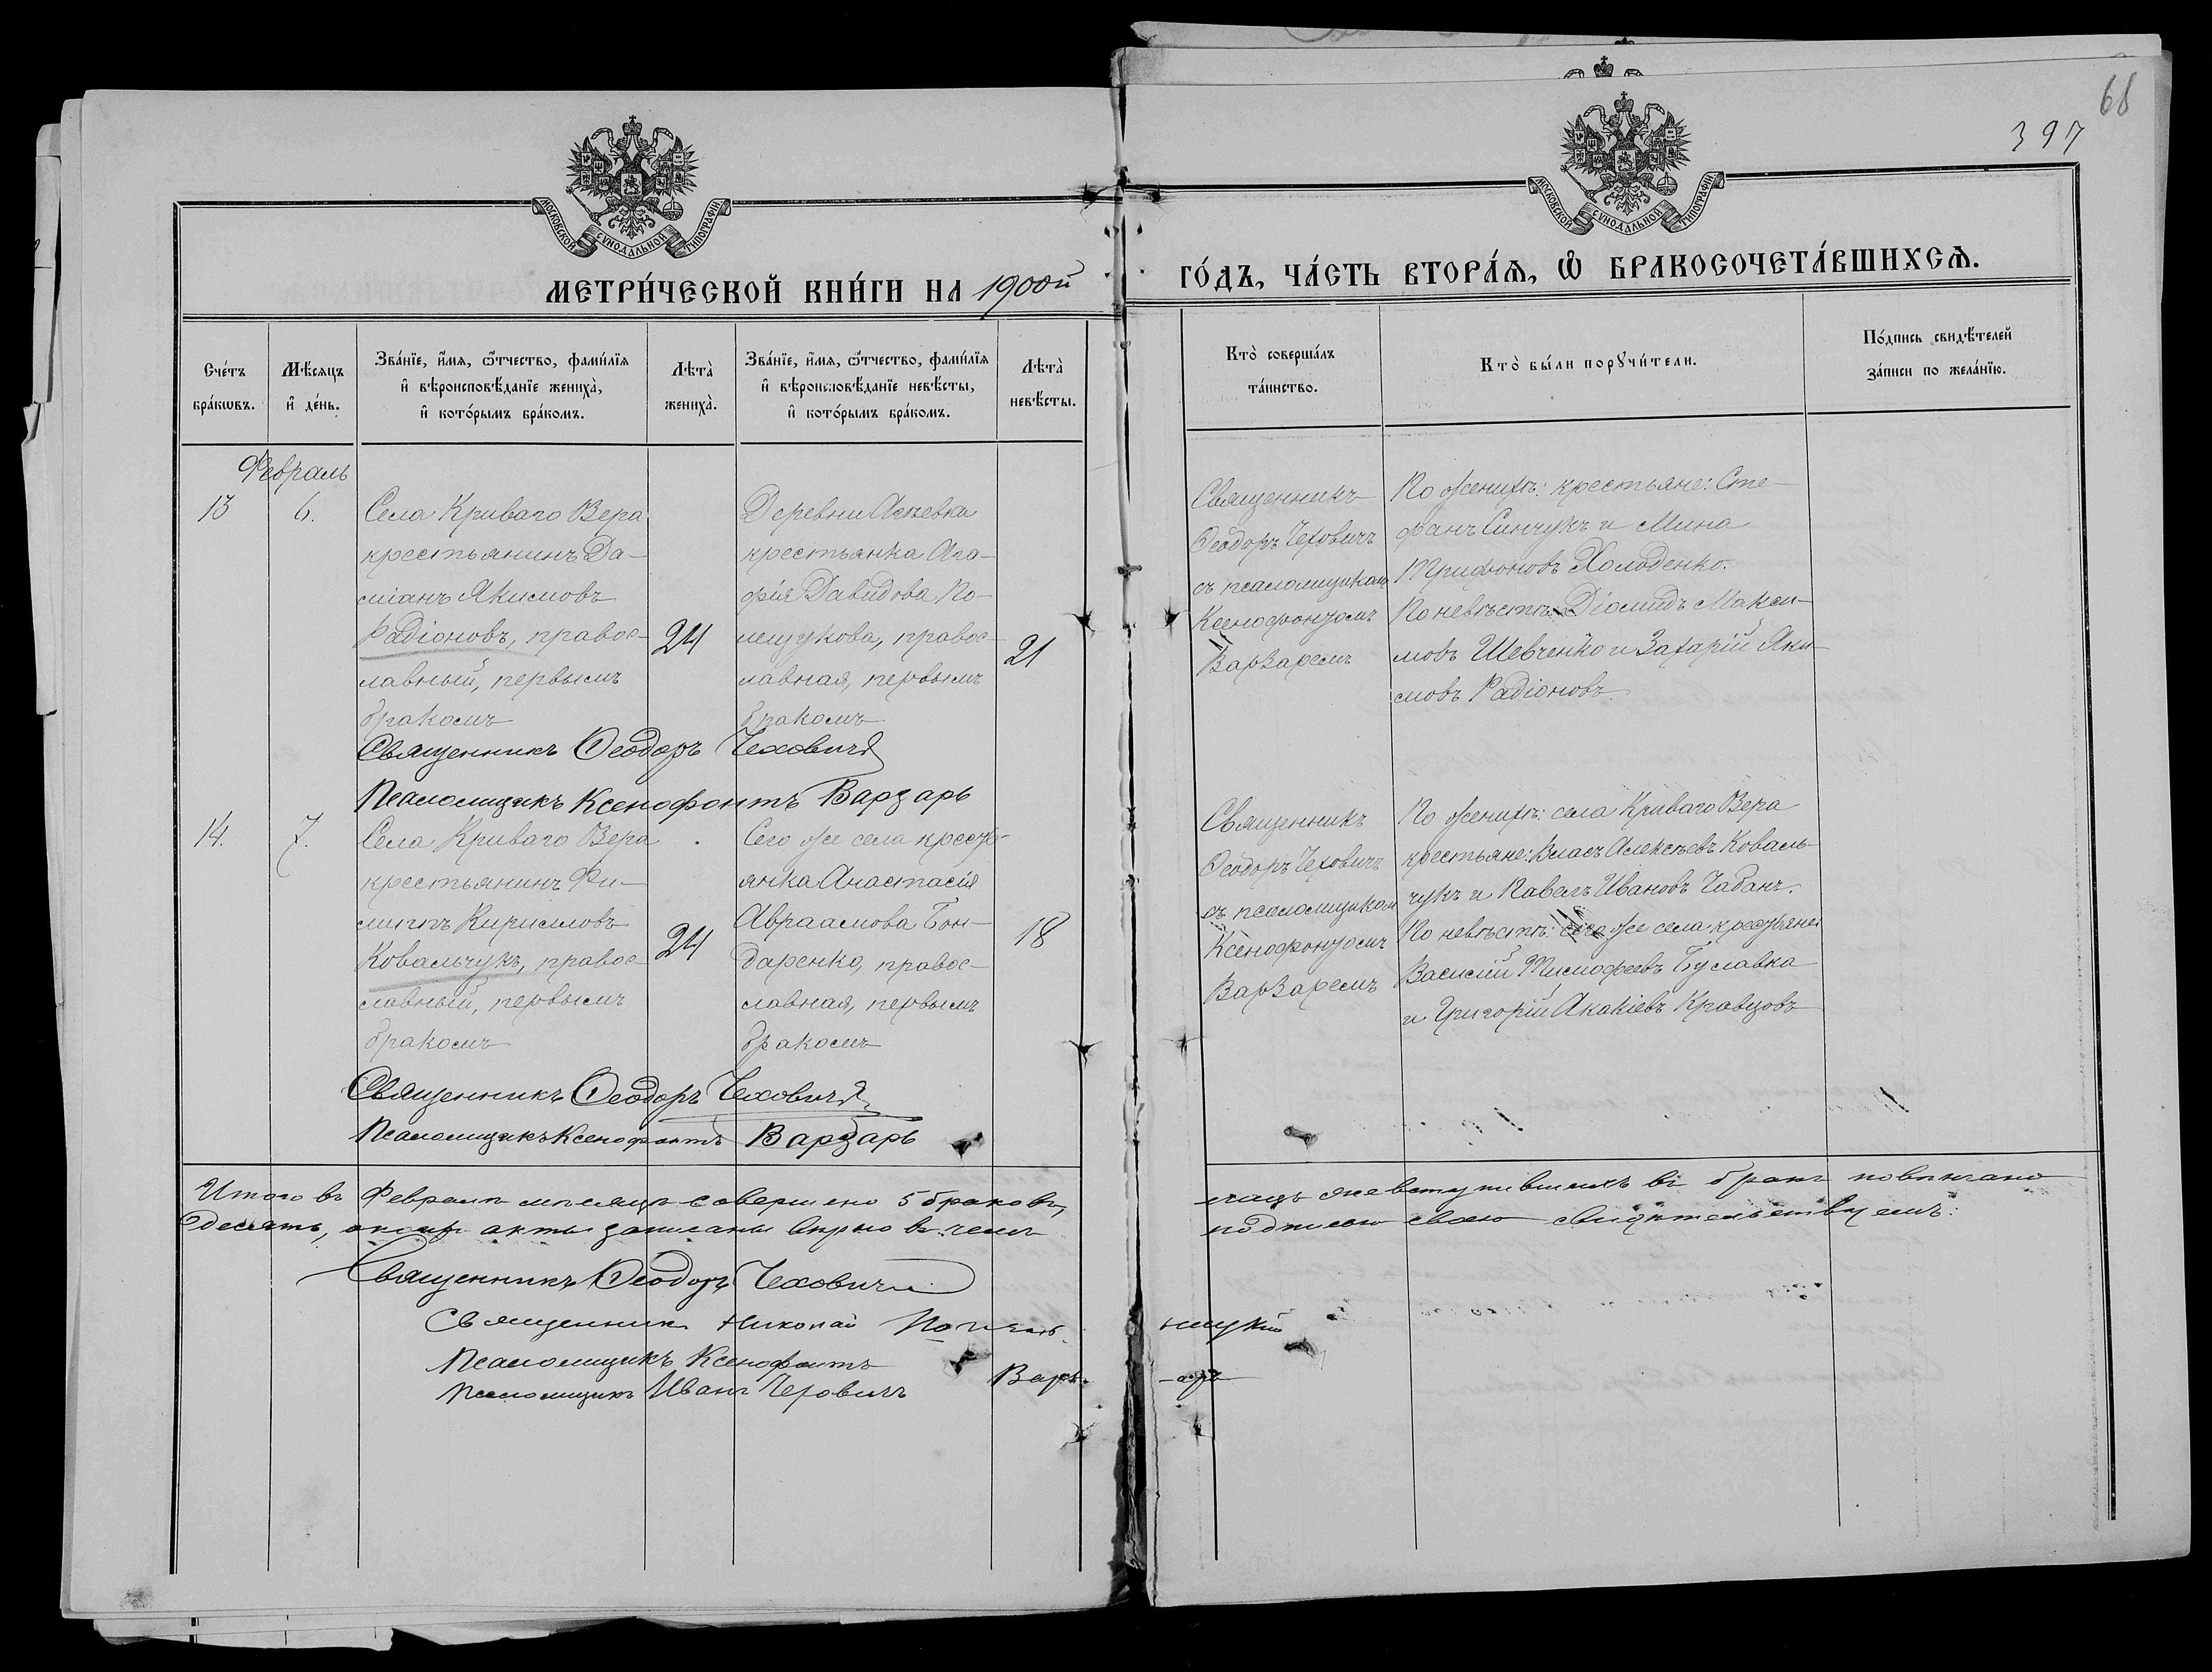 68
397
МОСКОВСКОЙ СѴНОДАЛЬНОЙ ТИПОГРАФІИ
МОСКОВСКОЙ СѴНОДАЛЬНОЙ ТИПОГРАФІИ
МЕТРИ́ЧЕСКОЙ КНИ́ГИ НА 1900й
ГО́ДЪ, ЧА́СТЬ ВТОРА́Ѧ, Ѡ҆ БРАКОСОЧЕТА́ВШИХСѦ.
Сче́тъ
бра́ковъ.
Мѣ́сяцъ
и҆ де́нь.
Зва́нїе, и҆́мя, ѻ҆́тчество, фами́лїя
и҆ вѣроисповѣ́данїе жениха̀,
и҆ кото́рымъ бра́комъ.
Лѣта̀
жениха̀.
Зва́нїе, и҆́мя, ѻ҆́тчество, фами́лїя
и҆ вѣроисповѣ́данїе невѣ́сты,
и҆ кото́рымъ бра́комъ.
Лѣта̀
невѣ́сты.
Кто̀ соверша́лъ
та́инство.
Кто̀ бы́ли порꙋчи́тели.
По́дпись свидѣ́телей
за́писи по жела́нїю.
Февраль
13
6.
Села Криваго Бера
крестьянинъ Да-
міанъ Якимовъ
Радіоновъ, правос-
лавный, первымъ
бракомъ
24
Деревни
крестьянка Ага-
фія Давидова По-
лещукова, правос-
лавная, первымъ
бракомъ
21
Священникъ
Ѳеодоръ Чеховичъ
съ псаломщикомъ
Ксенофонтомъ
Варзаремъ
По женихѣ: крестьяне: Сте-
фанъ Синчукъ и Мина
Трифоновъ Холоденко.
По невѣстѣ: Діомидъ Макси-
мовъ Шевченко и Захарій Яки-
мовъ Радіоновъ.
Священникъ Ѳеодоръ Чеховичъ
Псаломщикъ Ксенофонтъ Варзарь
14.
7.
Села Криваго Бера
крестьянинъ Фи-
липпъ Кирилловъ
Ковальчукъ, правос-
лавный, первымъ
бракомъ
24
Сего же села кресть-
янка Анастасія
Авраамова Бон-
даренко, правос-
лавная, первымъ
бракомъ
18
Священникъ
Ѳеодоръ Чеховичъ
съ псаломщикомъ
Ксенофонтомъ
Варзаремъ
По женихѣ: села Криваго Бера
крестьяне: Власъ Алексѣевъ Коваль-
чукъ и Павелъ Ивановъ Чабанъ.
По невѣстѣ: сего же села крестьяне:
Василій Тимофеевъ Буславка
и Григорій Акакіевъ Кравцовъ
Священникъ Ѳеодоръ Чеховичъ
Псаломщикъ Ксенофонтъ Варзарь
Итого въ Февралѣ мѣсяцѣ совершено 5 браковъ,
лицъ же вступившихъ въ бракъ повѣнчано
десять, акты записаны вѣрно въ чемъ
подписью своею свидѣтельствуемъ:
Священникъ Ѳеодоръ Чеховичъ
Священникъ Николай
Псаломщикъ Ксенофонтъ Варзарь
Псаломщикъ Иванъ Чеховичъ